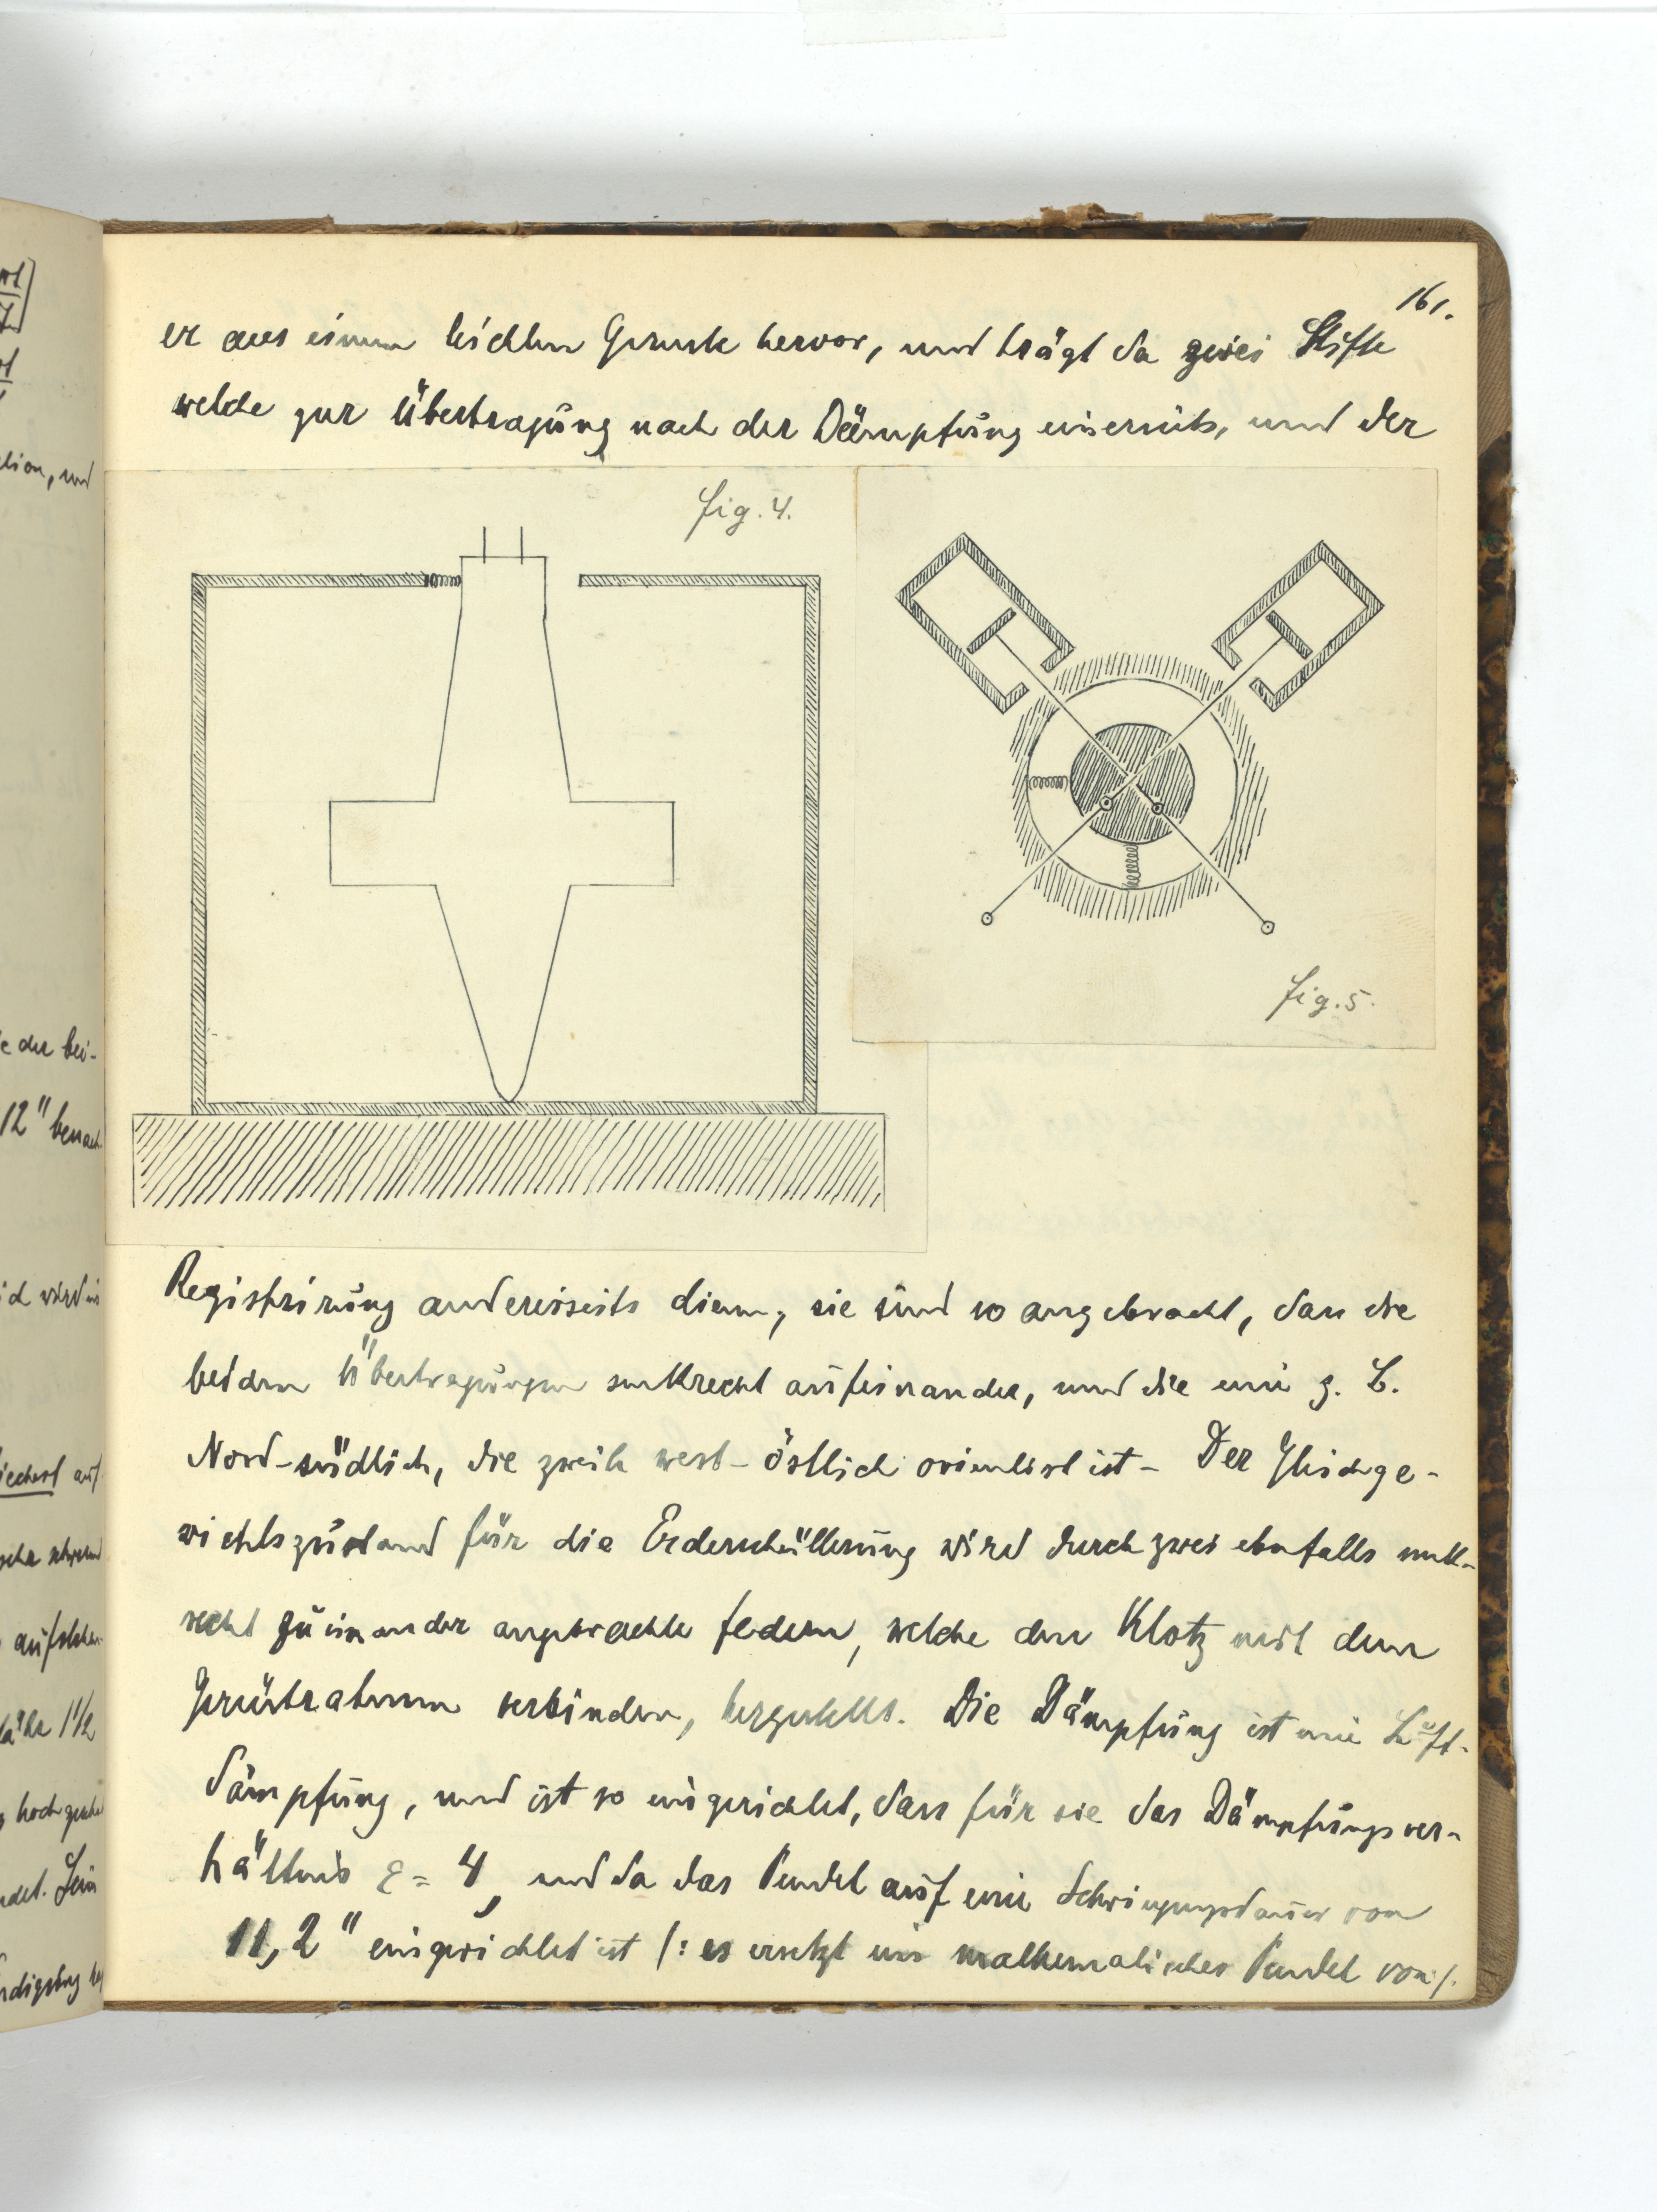 161.
er aus einem leichten Gerüste hervor, und trägt da zwei Stifte
welche zur Übertragung nach der Dämpfung einerseits, und der
fig. 4.
fig. 5.
Registrirung andererseits dienen, sie sind so angebracht, dass die
beiden Übertragungen senkrecht aufeinander, und die eine z. B.
Nord-südlich, die zweite west-östlich orientirt ist - Der Gleichge-
wichtszustand für die Erderschütterung wird durch zwei ebenfalls senk-
recht zueinander angebrachte federn, welche den Klotz mit dem
Gerüstrahmen verbinden, hergestellt. Die Dämpfung ist eine Luft-
dämpfung, und ist so eingerichtet, dass für sie das Dämpfungsver-
hältnis ε = 4, und da das Pendel auf eine Schwingungsdauer von
11,2" eingerichtet ist /: es ersetzt ein mathematisches Pendel von /.
tion, und
e der bei-
12" benach
id wird in
iechert auf
sehr schwer
aufstehen
1 1/2
hoch
ndet. Sein